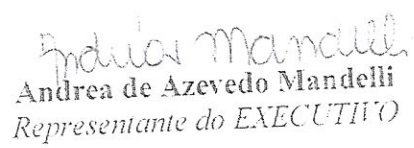 Andrea Mandelli
Andrea de Azevedo Mandelli
Representante do EXECUTIVO